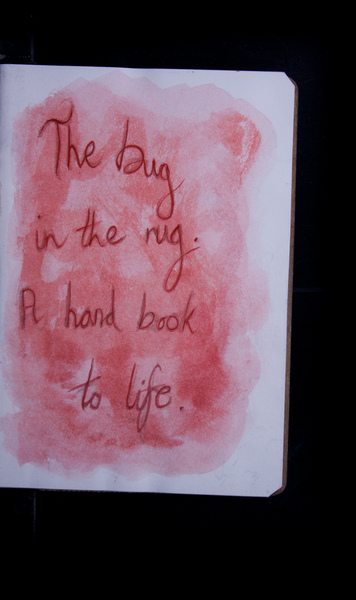 The bug
in the rug.
A hand book
to life.